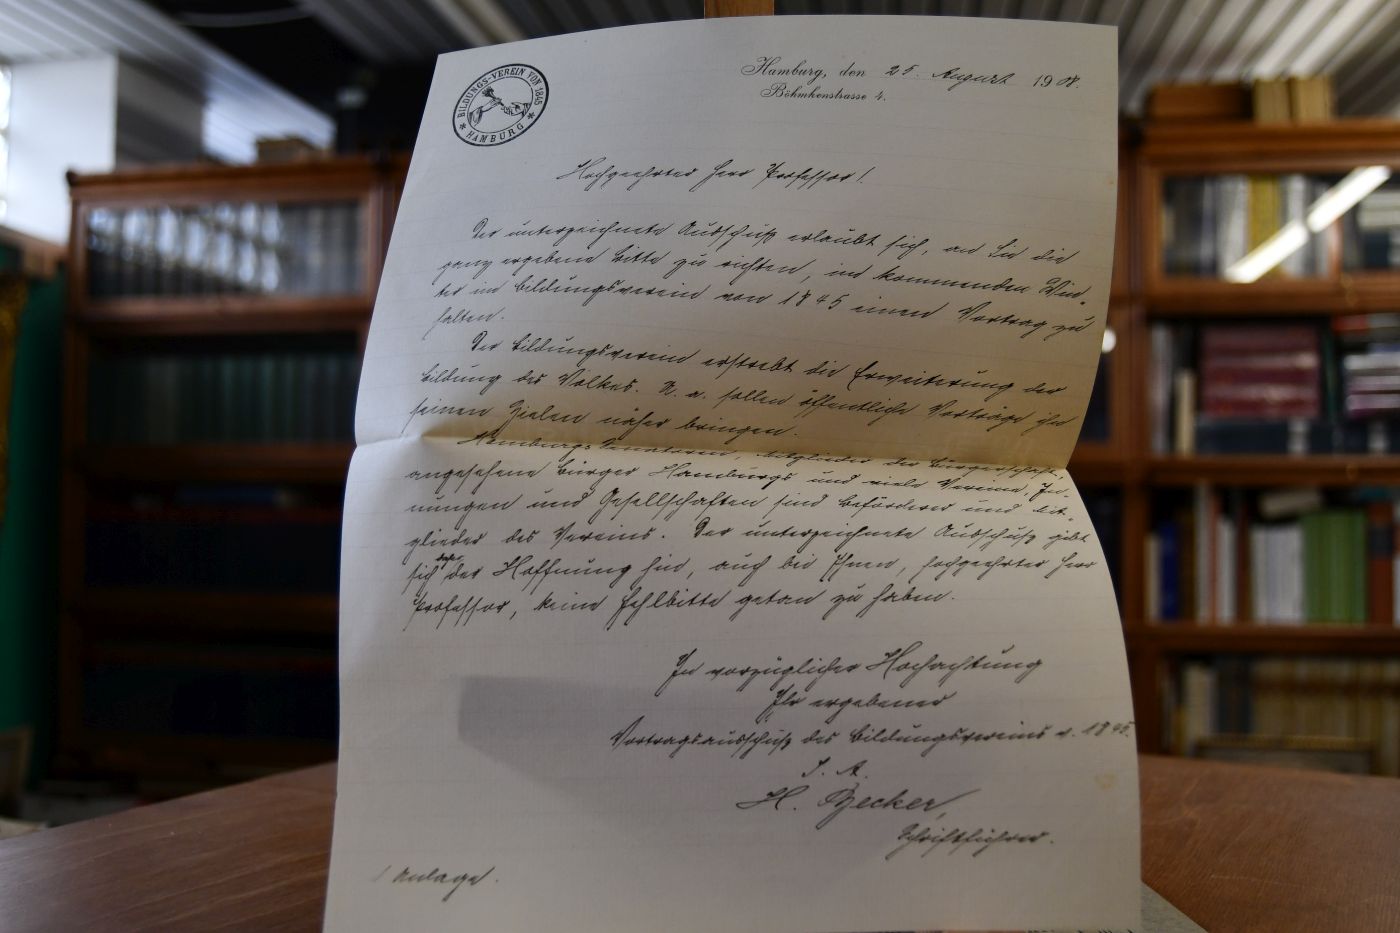 BILDUNGS-VEREIN VON 1845
* HAMBURG *
Hamburg, den 25. August 1908.
Böhmkenstrasse 4.
Hochgeehrter Herr Professor!
Der unterzeichnete Ausschuß erlaubt sich, an Sie die
ganz ergebene Bitte zu richten, im kommenden Win-
ter im Bildungsverein von 1845 einen Vortrag zu
halten.
Der Bildungsverein erstrebt die Erweiterung der
Bildung des Volkes. U. a. sollen öffentliche Vorträge ihn
seinen Zielen näher bringen.
Hamburgs Senatoren, Mitglieder der Bürgerschaft,
angesehene Bürger Hamburgs und viele Vereine, In-
nungen und Gesellschaften sind Beförderer und Mit-
glieder des Vereins. Der unterzeichnete Ausschuß gibt
sich daher der Hoffnung hin, auch bei Ihnen, hochgeehrter Herr
Professor, keine Fehlbitte getan zu haben.
In vorzüglicher Hochachtung
Ihr ergebener
Vortragsausschuß des Bildungsvereins v. 1845.
I. A.
H. Becker,
Schriftführer.
1 Anlage.